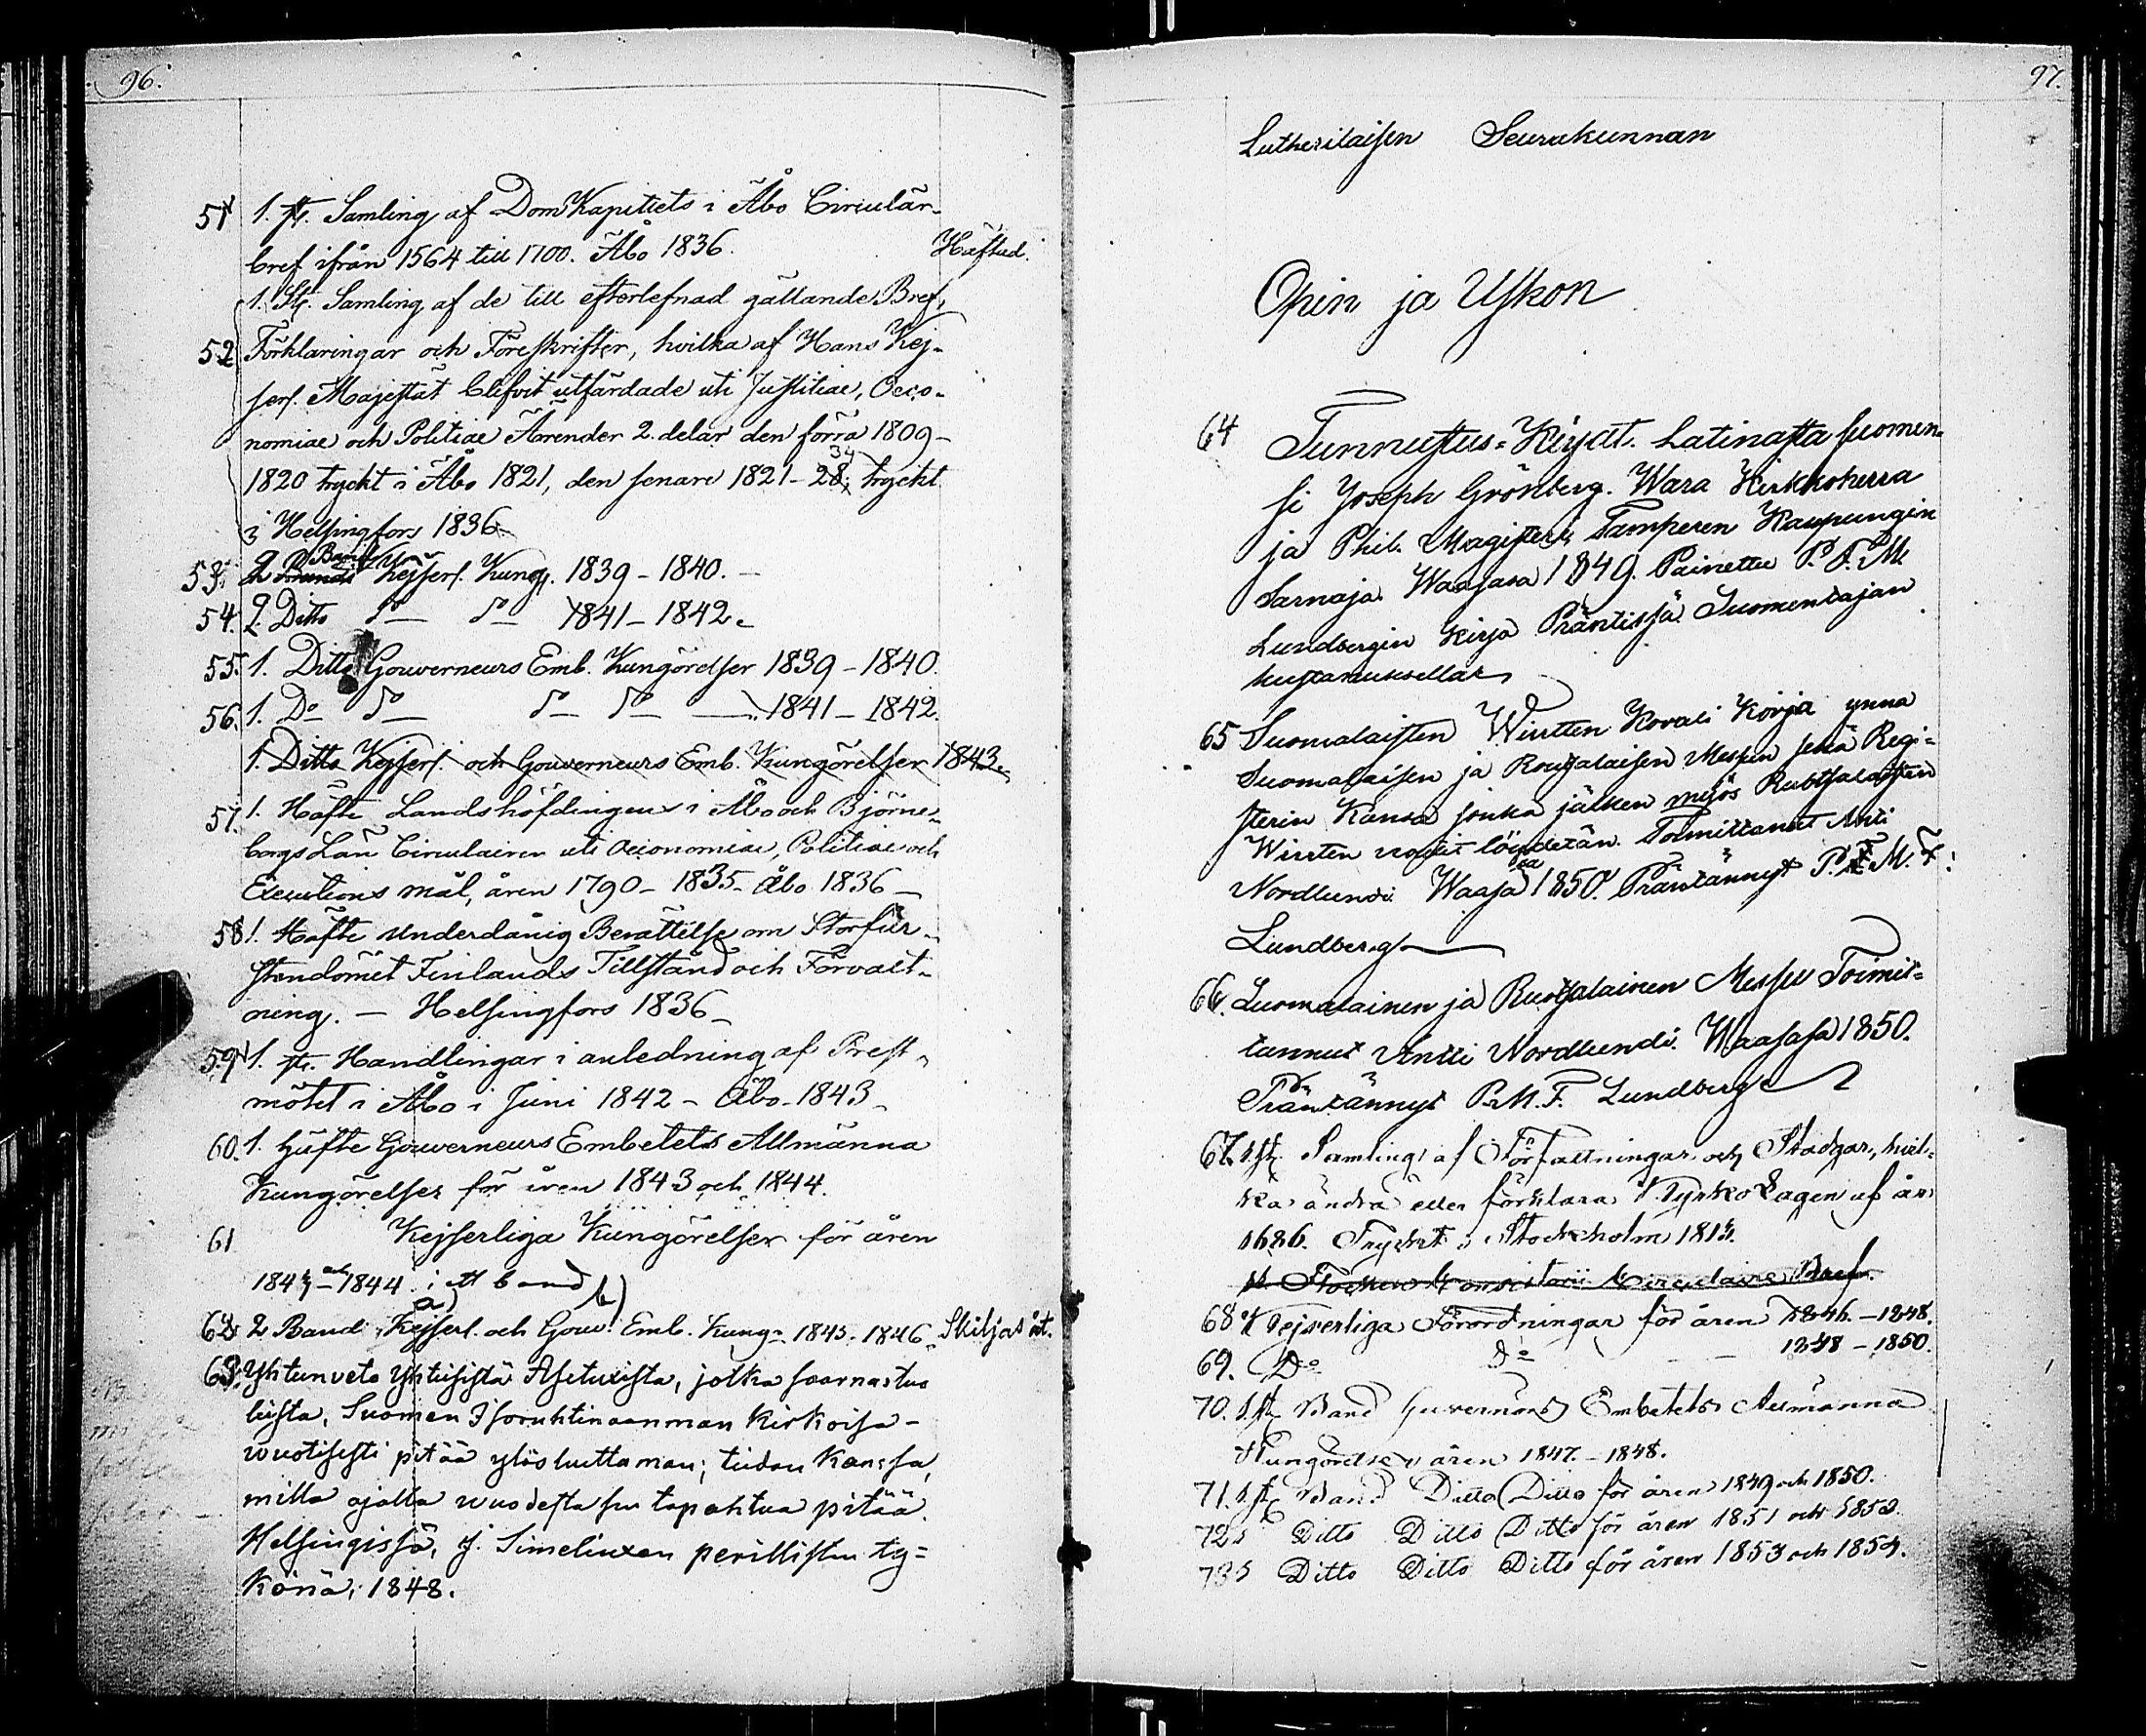 96.
51 1. st. Samling af DomKapitlets i Åbo Circulär-
bref ifrån 1564 till 1700. Åbo 1836. Häftad.
1. St. Samling af de till efterlefnad gällande Bref,
52 Förklaringar och Föreskrifter, hvilka af Hans Kej-
serl. Majestät blifvit utfärdade uti Justitiae, Oeco-
nomiae och Politiae Ärender 2. delar den förra 1809-
1820 tryckt i Åbo 1821, den senare 1821-28, 34 tryckt
i Helsingfors 1836
53. 2 Band Kejserl. Kung. 1839-1840.
54. 2. Ditto do do 1841-1842.
55. 1. Ditto Gouverneurs Emb. Kungörelser 1839-1840.
56. 1. Do do do do 1841-1842.
1. Ditto Kejserl. och Gouverneurs Emb. Kungörelser 1843.
57. 1. Häfte Landshöfdingens i Åbo och Björne-
borgs Län Circulairer uti Oeconomiae, Politiae och
Executions mål, åren 1790-1835. Åbo 1836
58 1. Häfte Underdånig Berättelse om Storfur-
stendömet Finlands Tillstånd och Förvalt-
ning. - Helsingfors 1836
59 1. st. Handlingar i anledning af Prest-
mötet i Åbo i Juni 1842 - Åbo 1843
60. 1. häfte Gouverneurs Embetets Allmänna
Kungörelser för åren 1843 och 1844.
61 Kejserliga Kungörelser för åren
1843 och 1844. i band
62 2 Band a) Kejserl. och b) Gouv. Emb. Kung. 1845. 1846. Skiljas åt.
63. Yhtunveto yhteisistä Asetuxista, jotka saarnastuo
leista, Suomen Isoruhtinaanman Kirkoisa-
wuotisesti pitää ylösluettaman; tiedon Kanssa,
milla ajalla wuodesta sen tapahtua pitää.
Helsingissä, J. Simeliuxen perillisten ty=
könä, 1848.
97.
Lutherilaisen Seurakunnan
Opin ja Uskon
64 Tunnustus-Kirjat. Latinasta suomen-
si Joseph Grönberg. Wara Kirkkoherra
ja Phil. Magisteri, Tamperen Kaupungin
Sarnaja. Waasasa 1849. Painettu P. F. M.
Lundbergin Kirja Präntissä Suomentajan
kustanuksellas
65 Suomalaisten Wirtten Korali Körja ynna
Suomalaisen ja Routsalaisen Messun sekä Regi-
sterin Kansa jonka jälken myös Rubtsalaisten
Wirrten nogit löydetän. Toimittanut Anti
Nordlundi. Waasasa 1850. Präntännyt P. M. F.
Lundberg
66. Suomalainen ja Ruotsalainen Messu Toimit-
tannut Antti Nordlundi. Waasasa 1850.
Präntännyt P. M. F. Lundberg
67. 1 st. Samling af Författningar och Stadgar, hvil-
ka ändra eller förklara KyrkoLagen af år
1686. Tryckt i Stockholm 1813.
Consistorii Circulaire Bref.
68 Kejserliga Förordningar för åren 1846.-1848.
69. Do do 1848-1850.
70. 1 st. Band Guvernörs Embetets Allmänna
Kungörelser åren 1847.-1848.
71. 1 st. Band Ditto Ditto för åren 1849 och 1850.
72 Ditto Ditto Ditto för åren 1851 och 1852.
73 Ditto Ditto Ditto för åren 1853 och 1854.